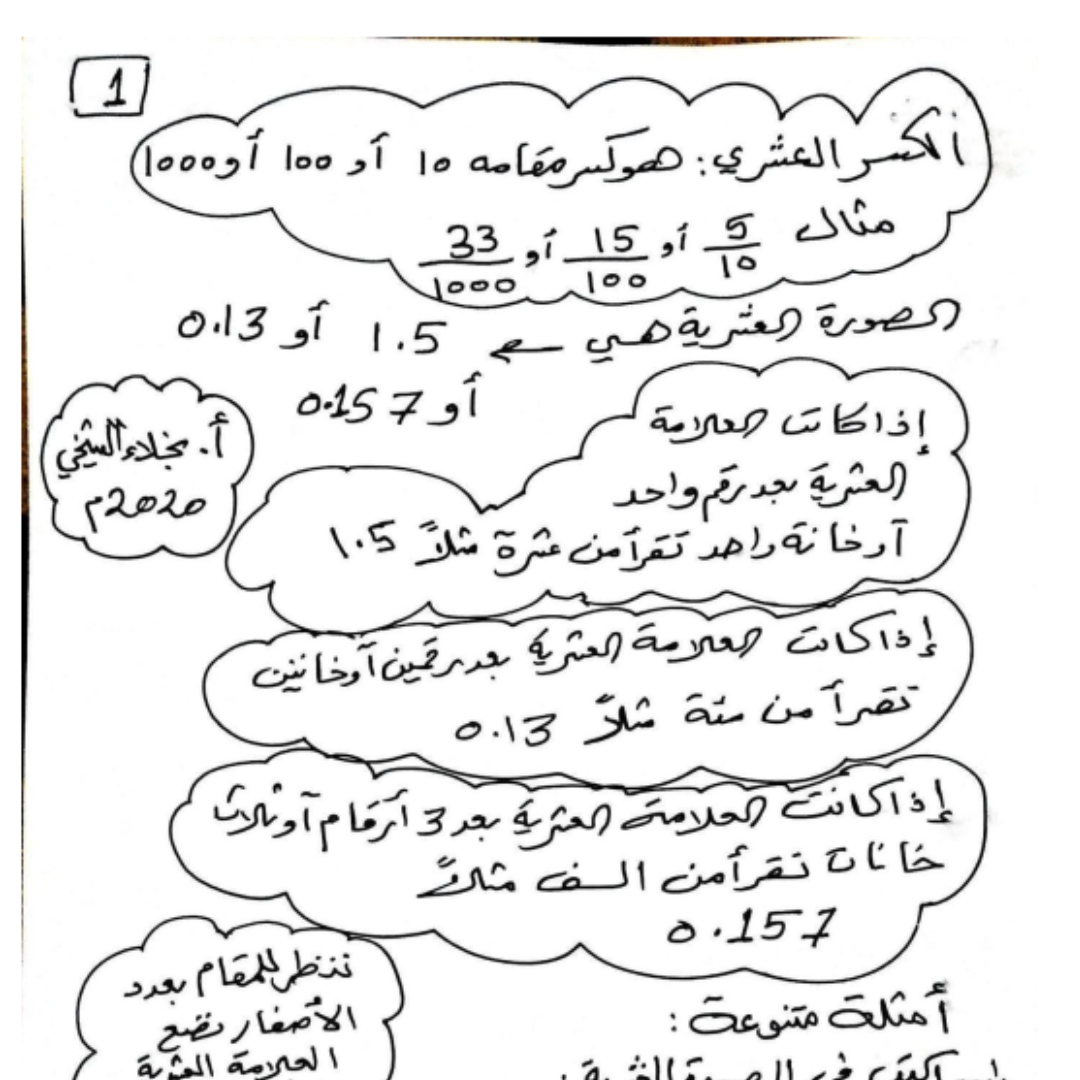 1
الكسر العشري: هو كسر مقامه 10 أو 100 أو 1000
مثال 5/10 أو 15/100 أو 33/1000
الصورة العشرية هي ← 1.5 أو 0.13
أو 0.157
إذا كانت العلامة
العشرية بعد رقم واحد
أو خانة واحد تقرأ من عشرة مثلاً 1.5
أ. نجلاء الشيخي
2020م
إذا كانت العلامة العشرية بعد رقمين أو خانتين
تقرأ من مئة مثلاً 0.13
إذا كانت العلامة العشرية بعد 3 أرقام أو ثلاث
خانات تقرأ من الف مثلاً
0.157
ننظر للمقام بعدد
الأصفار نضع
العلامة العشرية
أمثلة متنوعة: